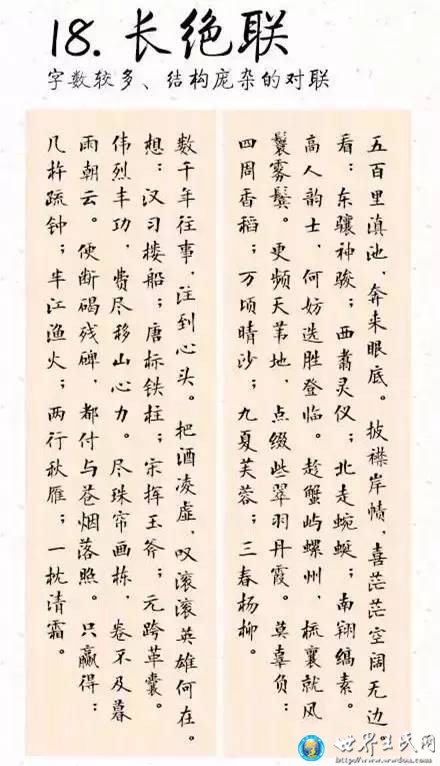 18.长绝联
字数较多、结构庞杂的对联
五百里滇池,奔来眼底。披襟岸帻,喜茫茫空阔无边。
看:东骧神骏;西翥灵仪;北走蜿蜒;南翔缟素。
高人韵士,何妨选胜登临。趁蟹屿螺州,梳襄就风
鬟雾鬓。更频天苇地,点缀些翠羽丹霞。莫辜负:
四周香稻;万顷晴沙;九夏芙蓉;三春杨柳。
数千年往事,注到心头。把酒凌虚,叹滚滚英雄何在。
想:汉习楼船;唐标铁柱;宋挥玉斧;元跨革囊。
伟烈丰功,费尽移山心力。尽珠帘画栋,卷不及暮
雨朝云。便断碣残碑,都付与苍烟落照。只赢得:
几杵疏钟;半江渔火;两行秋雁;一枕清霜。
世界王氏网